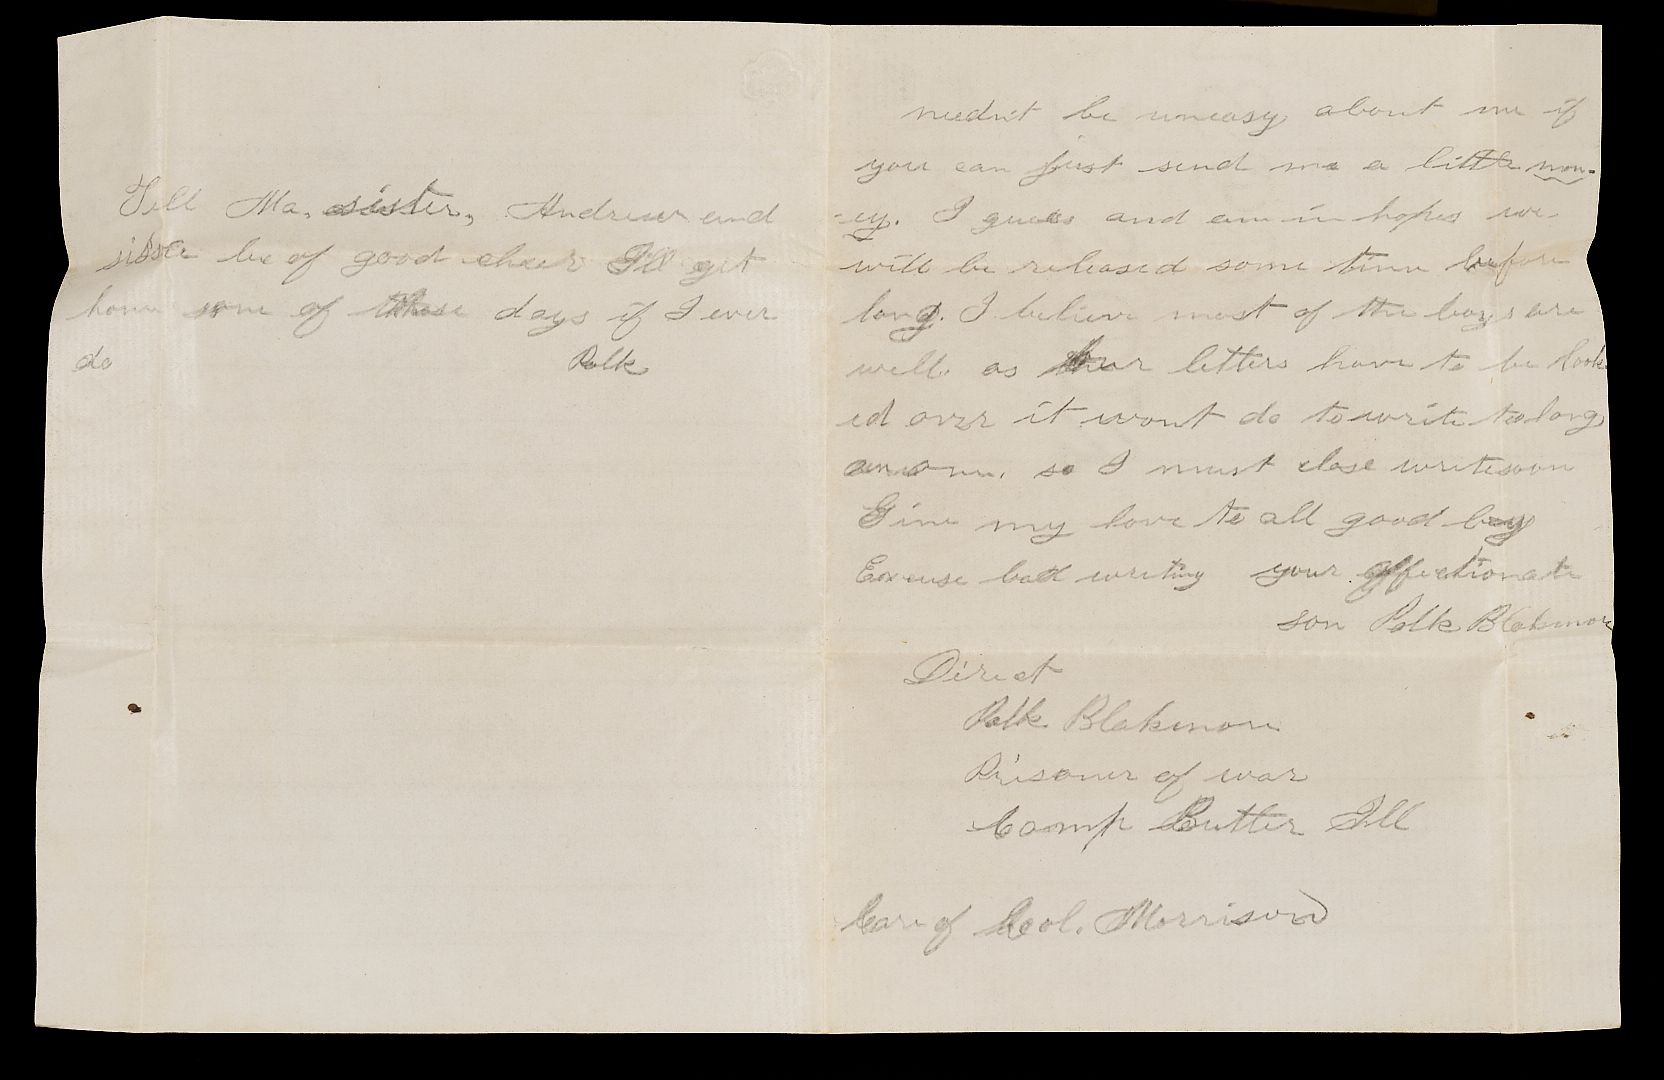 needn't be uneasy about me if
you can just send me a little mon-
-ey. I guess and am in hopes we
will be released some time before
long. I believe most of the boys are
well. as our letters have to be look
ed over it wont do to write too long
so I must close write soon
Give my love to all good by
Excuse bad writing your affectionate
son Polk Blakemore
Direct
Polk Blakemore
Prisoner of war
Camp Butler Ill
Care of Col. Morrison
Tell Ma, sister, Andrew and
be of good cheer I'll get
home some of these days if I ever
do Polk